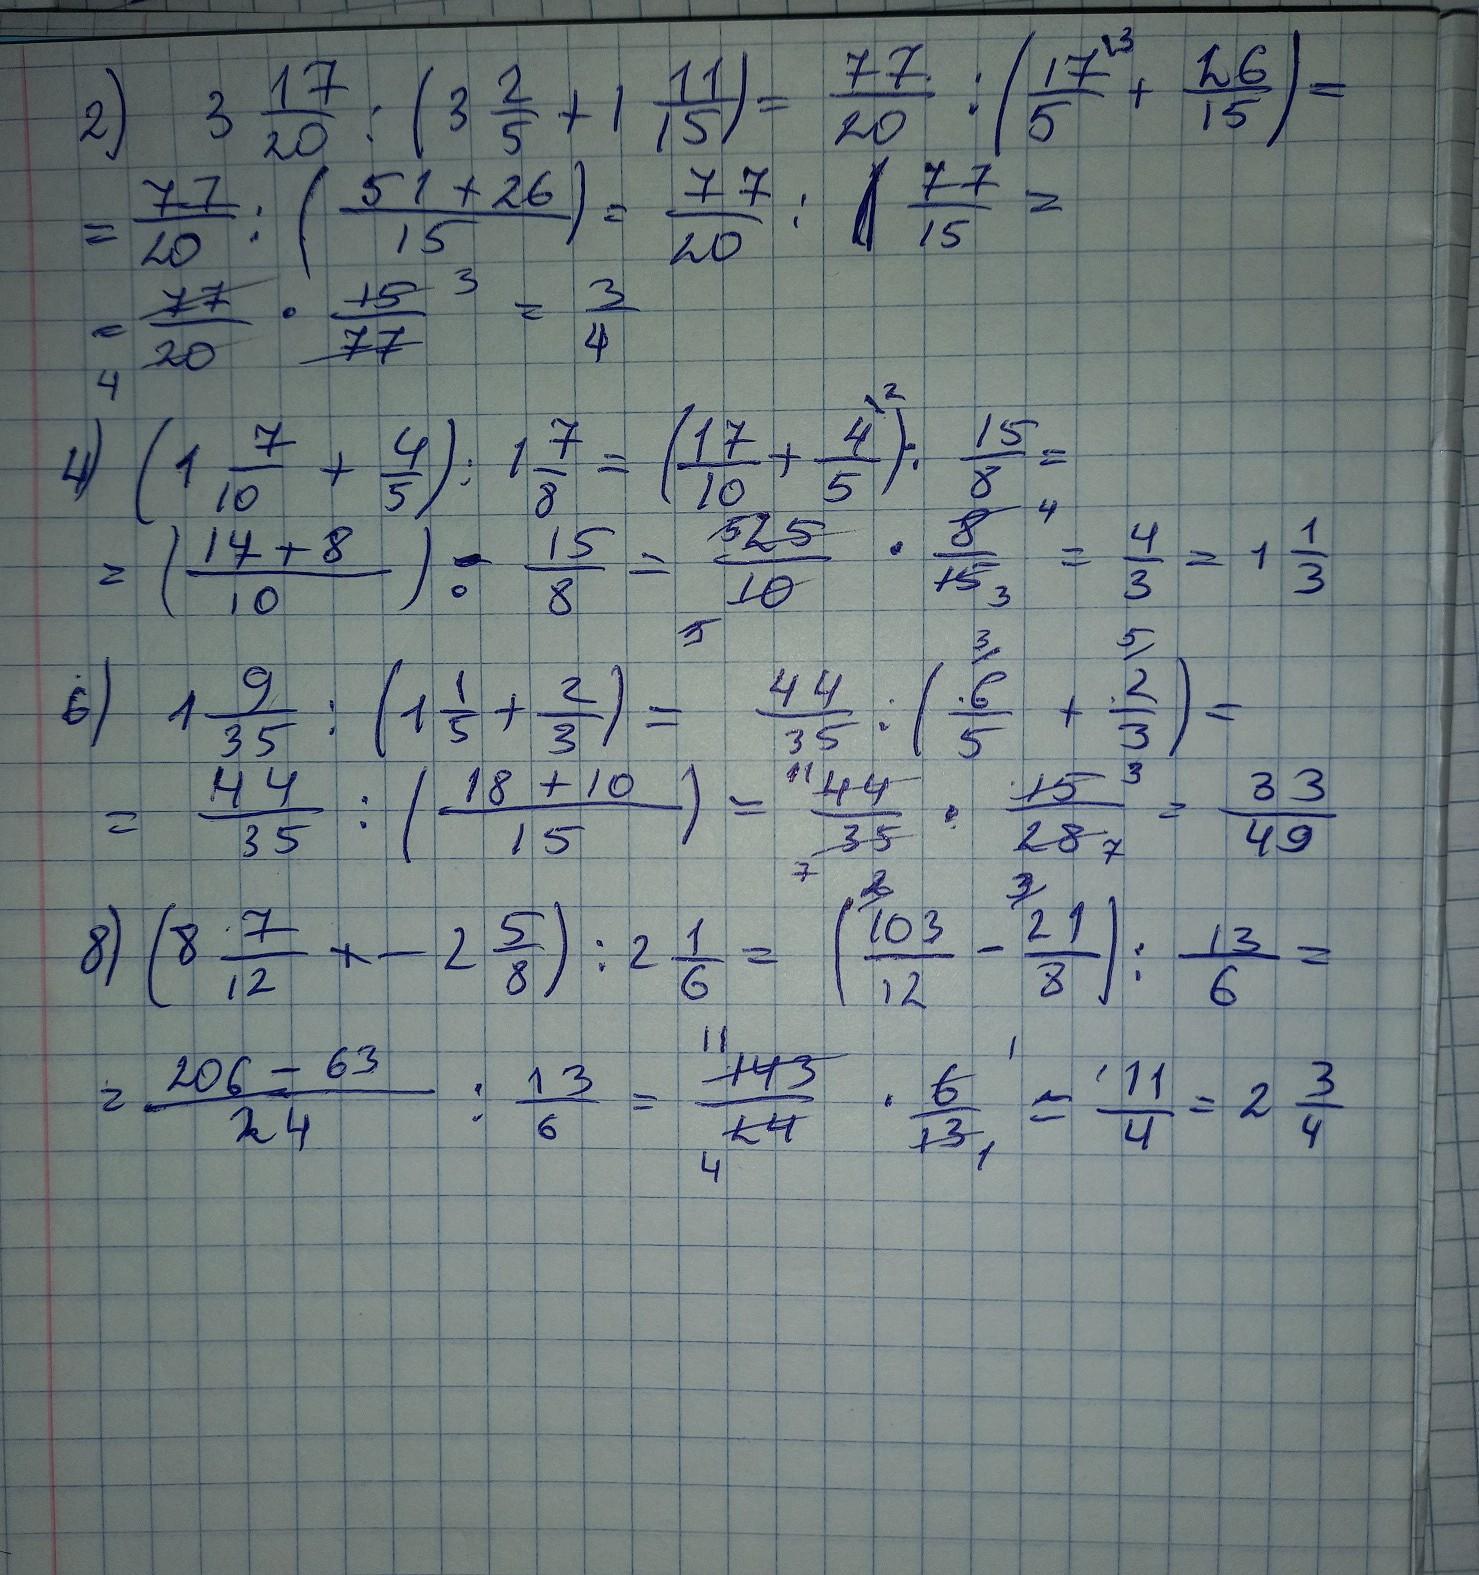 2) 3 17/20 : (3 2/5 + 1 11/15) = 77/20 : (17/5 \3 + 26/15) =
= 77/20 : (51 + 26/15) = 77/20 : 77/15 =
= 77/20 4 · 15/77 3 = 3/4
4) (1 7/10 + 4/5) : 1 7/8 = (17/10 + 4/5 \2) : 15/8 =
= (17 + 8/10) : 15/8 = 5 25/10 5 · 8/15 4 3 = 4/3 = 1 1/3
6) 1 9/35 : (1 1/5 + 2/3) = 44/35 : (3/ 6/5 + 5/ 2/3) =
= 44/35 : (18 + 10/15) = 11 44/35 7 · 15/28 3 7 = 33/49
8) (8 7/12 + - 2 5/8) : 2 1/6 = (2/ 103/12 - 3/ 21/8) : 13/6 =
= 206 - 63/24 : 13/6 = 11 143/24 4 · 6/13 1 1 = 11/4 = 2 3/4